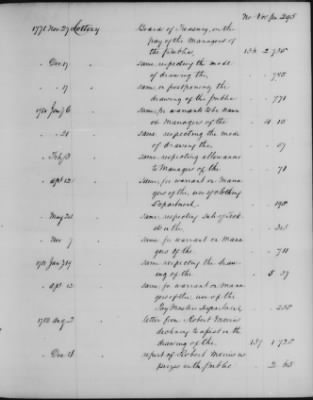 No Vol Pa 295
1778 Nov 27 Lottery Board of Treasury, on the
pay of the Managers of
the public 136 2 735
" Dec 17 " same respecting the mode
of drawing the " 745
" 17 " same on postponing the
drawing of the public " 771
" same for warrant to be
on Managers of the " 4 10
" 21 " same respecting the mode
of drawing the " 57
" Feb 13 " same respecting allowance
to Managers of the " 71
" Sept 12 " same for warrant on Mana
gers of the use of Clothing
Department "
" May 24 " same respecting sale of
in the "
" Nov 7 " same for warrant on Mana
gers of the " 711
same respecting the draw
ing of the " 5 39
" Sept 12 " same for warrant on Mana
gers of the use of the
Pay Masters Department "
Aug 2 " letter from Robert Morris
declining to assist in the
drawing of the 137 1 725
" Dec 18 " report of Robert Morris on
prizes in the public " 2 65